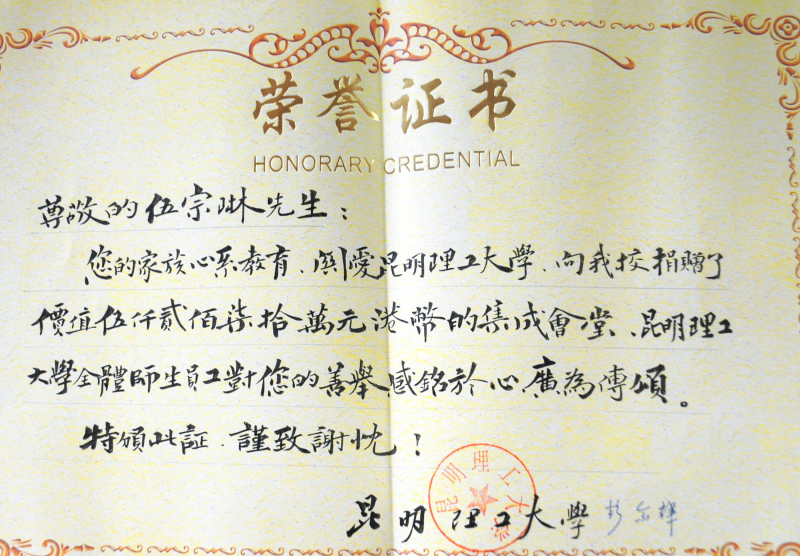 荣誉证书
HONORARY CREDENTIAL
尊敬的伍宗琳先生：
您的家族心系教育、関愛昆明理工大學、向我校捐贈了
價值伍仟贰佰柒拾萬元港幣的集成會堂、昆明理工
大學全體師生員工對您的善舉感銘於心廣為傳頌。
特頒此証、謹致謝忱！
昆明理工大學
昆明理工大学